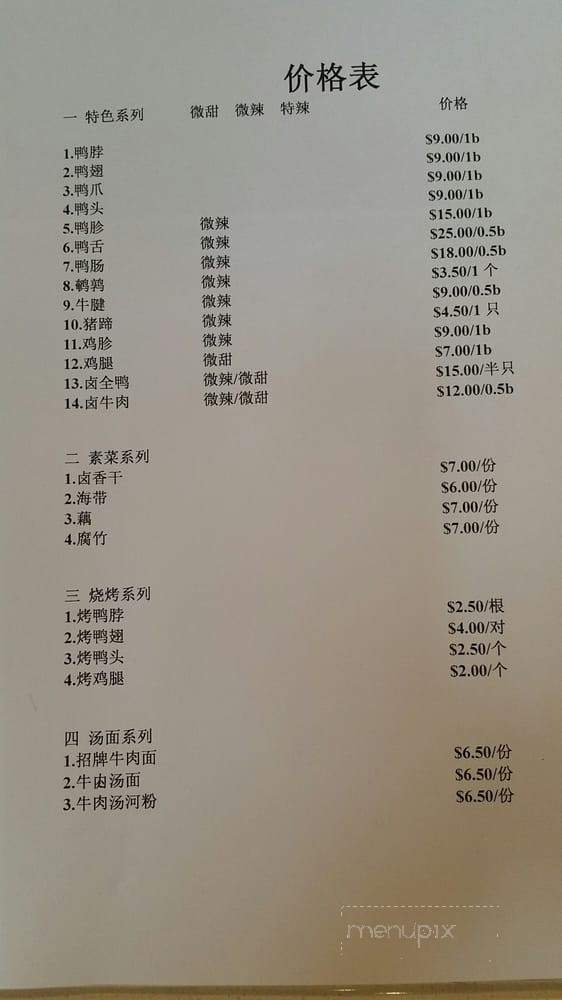 价格表
一 特色系列 微甜 微辣 特辣 价格
1.鸭脖 $9.00/1b
2.鸭翅 $9.00/1b
3.鸭爪 $9.00/1b
4.鸭头 $9.00/1b
5.鸭胗 微辣 $15.00/1b
6.鸭舌 微辣 $25.00/0.5b
7.鸭肠 微辣 $18.00/0.5b
8.鹌鹑 微辣 $3.50/1 个
9.牛腱 微辣 $9.00/0.5b
10.猪蹄 微辣 $4.50/1 只
11.鸡胗 微辣 $9.00/1b
12.鸡腿 微甜 $7.00/1b
13.卤全鸭 微辣/微甜 $15.00/半只
14.卤牛肉 微辣/微甜 $12.00/0.5b
二 素菜系列
1.卤香干 $7.00/份
2.海带 $6.00/份
3.藕 $7.00/份
4.腐竹 $7.00/份
三 烧烤系列
1.烤鸭脖 $2.50/根
2.烤鸭翅 $4.00/对
3.烤鸭头 $2.50/个
4.烤鸡腿 $2.00/个
四 汤面系列
1.招牌牛肉面 $6.50/份
2.牛肉汤面 $6.50/份
3.牛肉汤河粉 $6.50/份
menupix